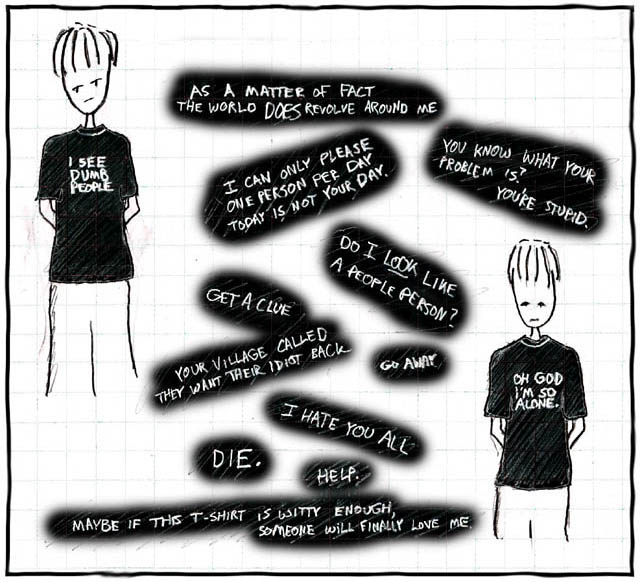 I SEE
DUMB
PEOPLE
AS A MATTER OF FACT
THE WORLD DOES REVOLVE AROUND ME
I CAN ONLY PLEASE
ONE PERSON PER DAY
TODAY IS NOT YOUR DAY.
YOU KNOW WHAT YOUR
PROBLEM IS?
YOU'RE STUPID.
DO I LOOK LIKE
A PEOPLE PERSON?
GET A CLUE
YOUR VILLAGE CALLED
THEY WANT THEIR IDIOT BACK
GO AWAY
I HATE YOU ALL
DIE.
HELP.
MAYBE IF THIS T-SHIRT IS WITTY ENOUGH,
SOMEONE WILL FINALLY LOVE ME.
OH GOD
I'M SO
ALONE.